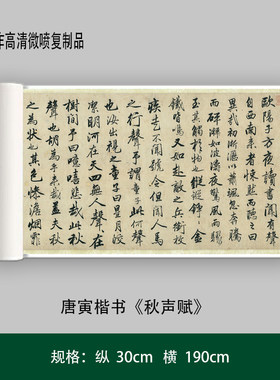 作高清微喷复制品
歐陽子方夜讀書聞有聲
自西南來者悚然而聽之曰
異哉初淅瀝以蕭颯忽奔騰
而砰湃如波濤夜驚風雨驟
至其觸於物也鏦鏦錚錚金
鐵皆鳴又如赴敵之兵銜枚
疾走不聞號令但聞人馬
之行聲予謂童子此何聲
也汝出視之童子曰星月皎
潔明河在天四無人聲聲在
樹間予曰噫嘻悲哉此秋
聲也胡為乎來哉蓋夫秋
之為狀也其色慘澹煙霏
唐寅楷书《秋声赋》
规格：纵 30cm 横 190cm